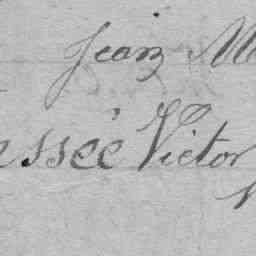 Jean M
essée Victor